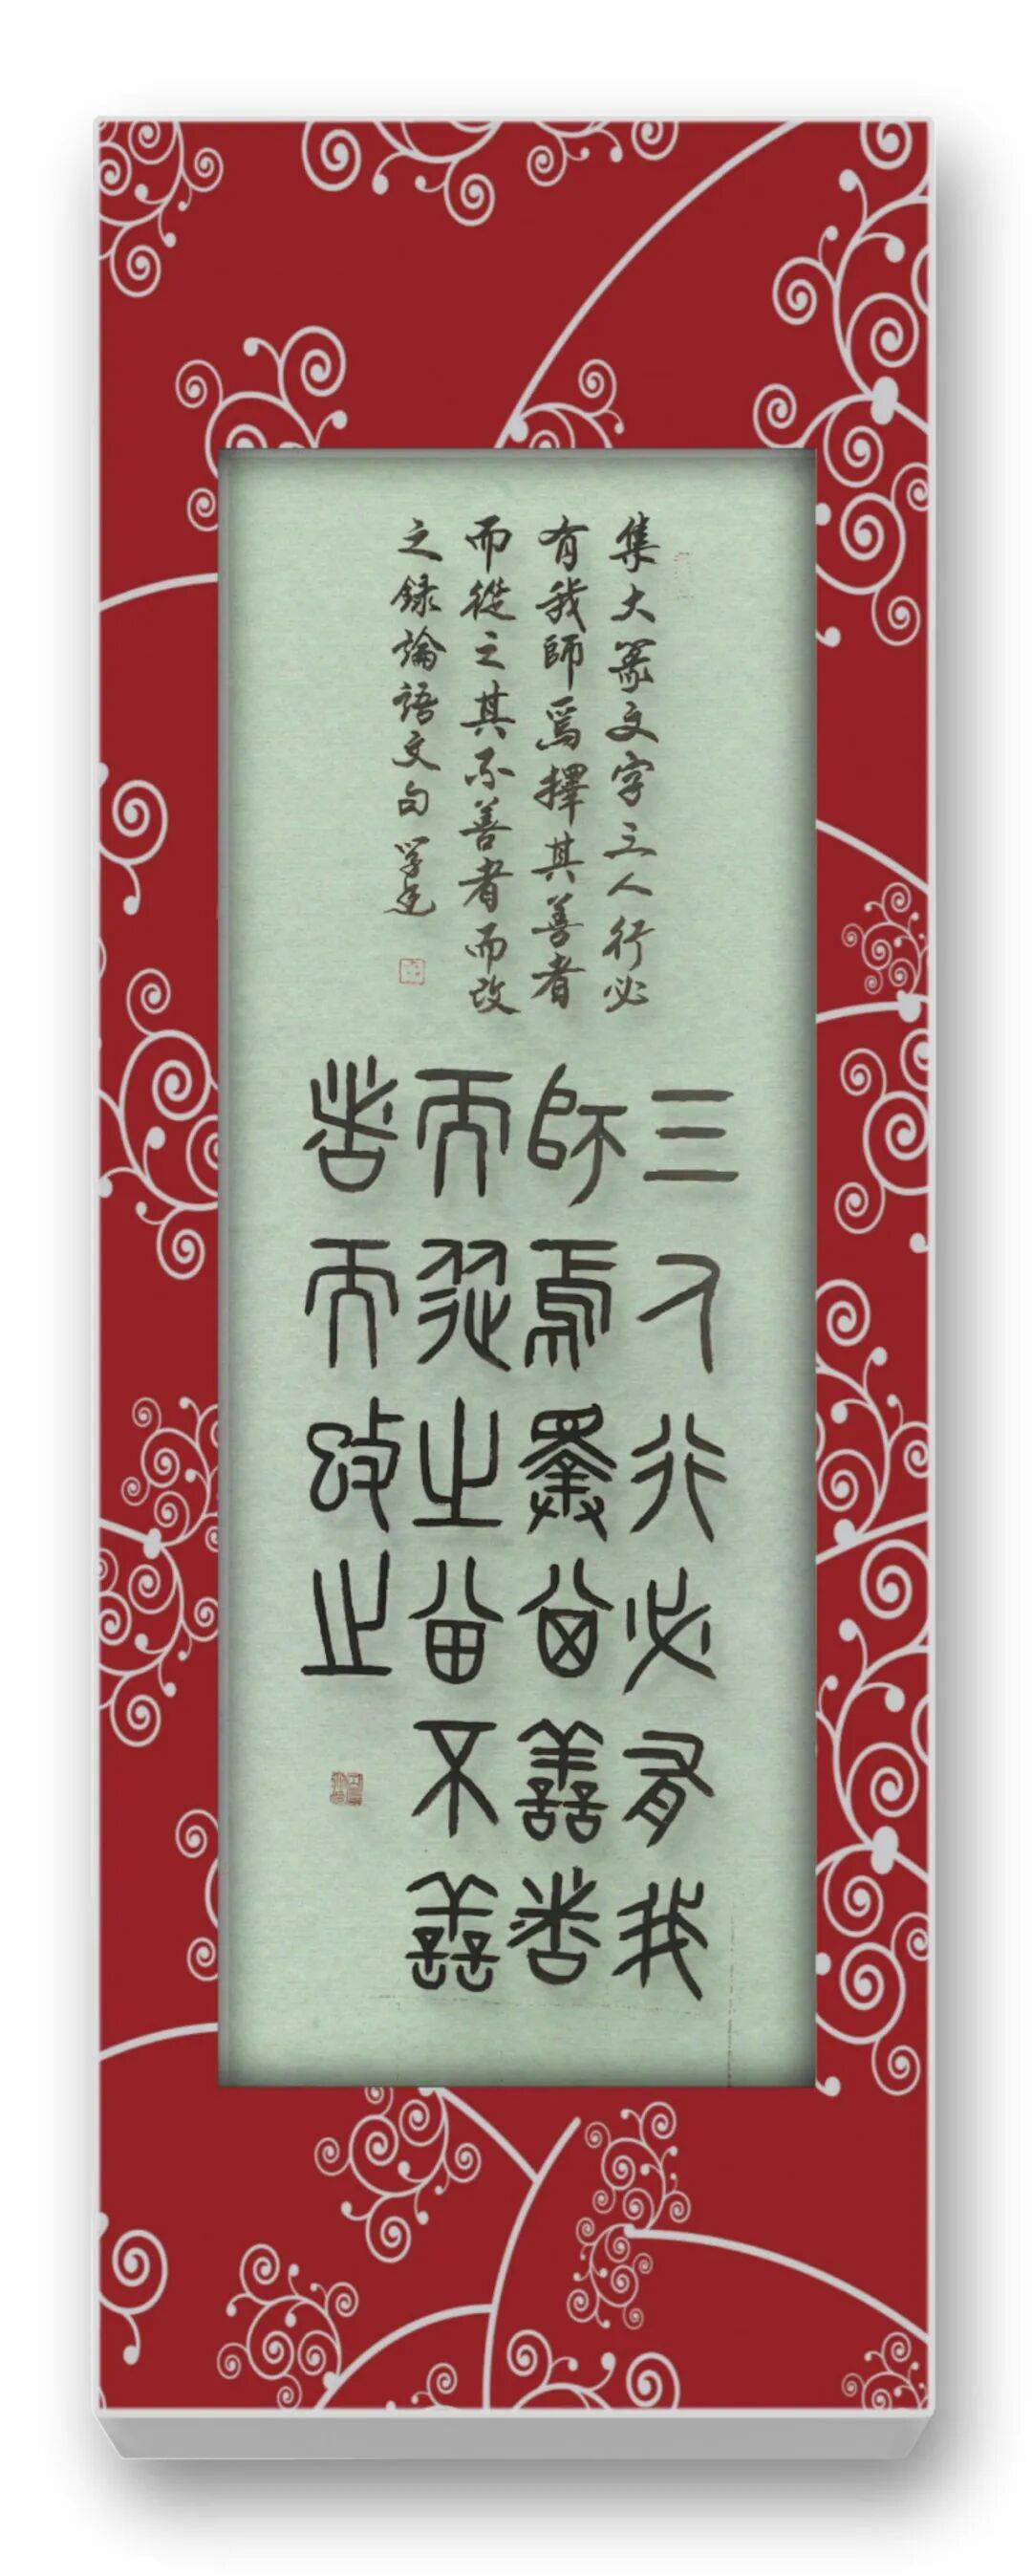 集大篆文字三人行必
有我師焉擇其善者
而從之其不善者而改
之錄論語文句
三人行必有我
師焉擇其善者
而從之其不善
者而改之